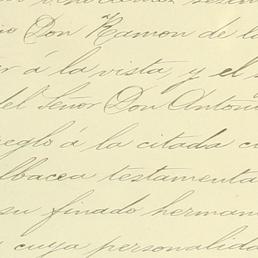 io Don Ramon de la
r á la vista, y el s
del Señor Don Antonio
reglo á la citada cu
lbacea testamenta
su finado herman
cuya personalida